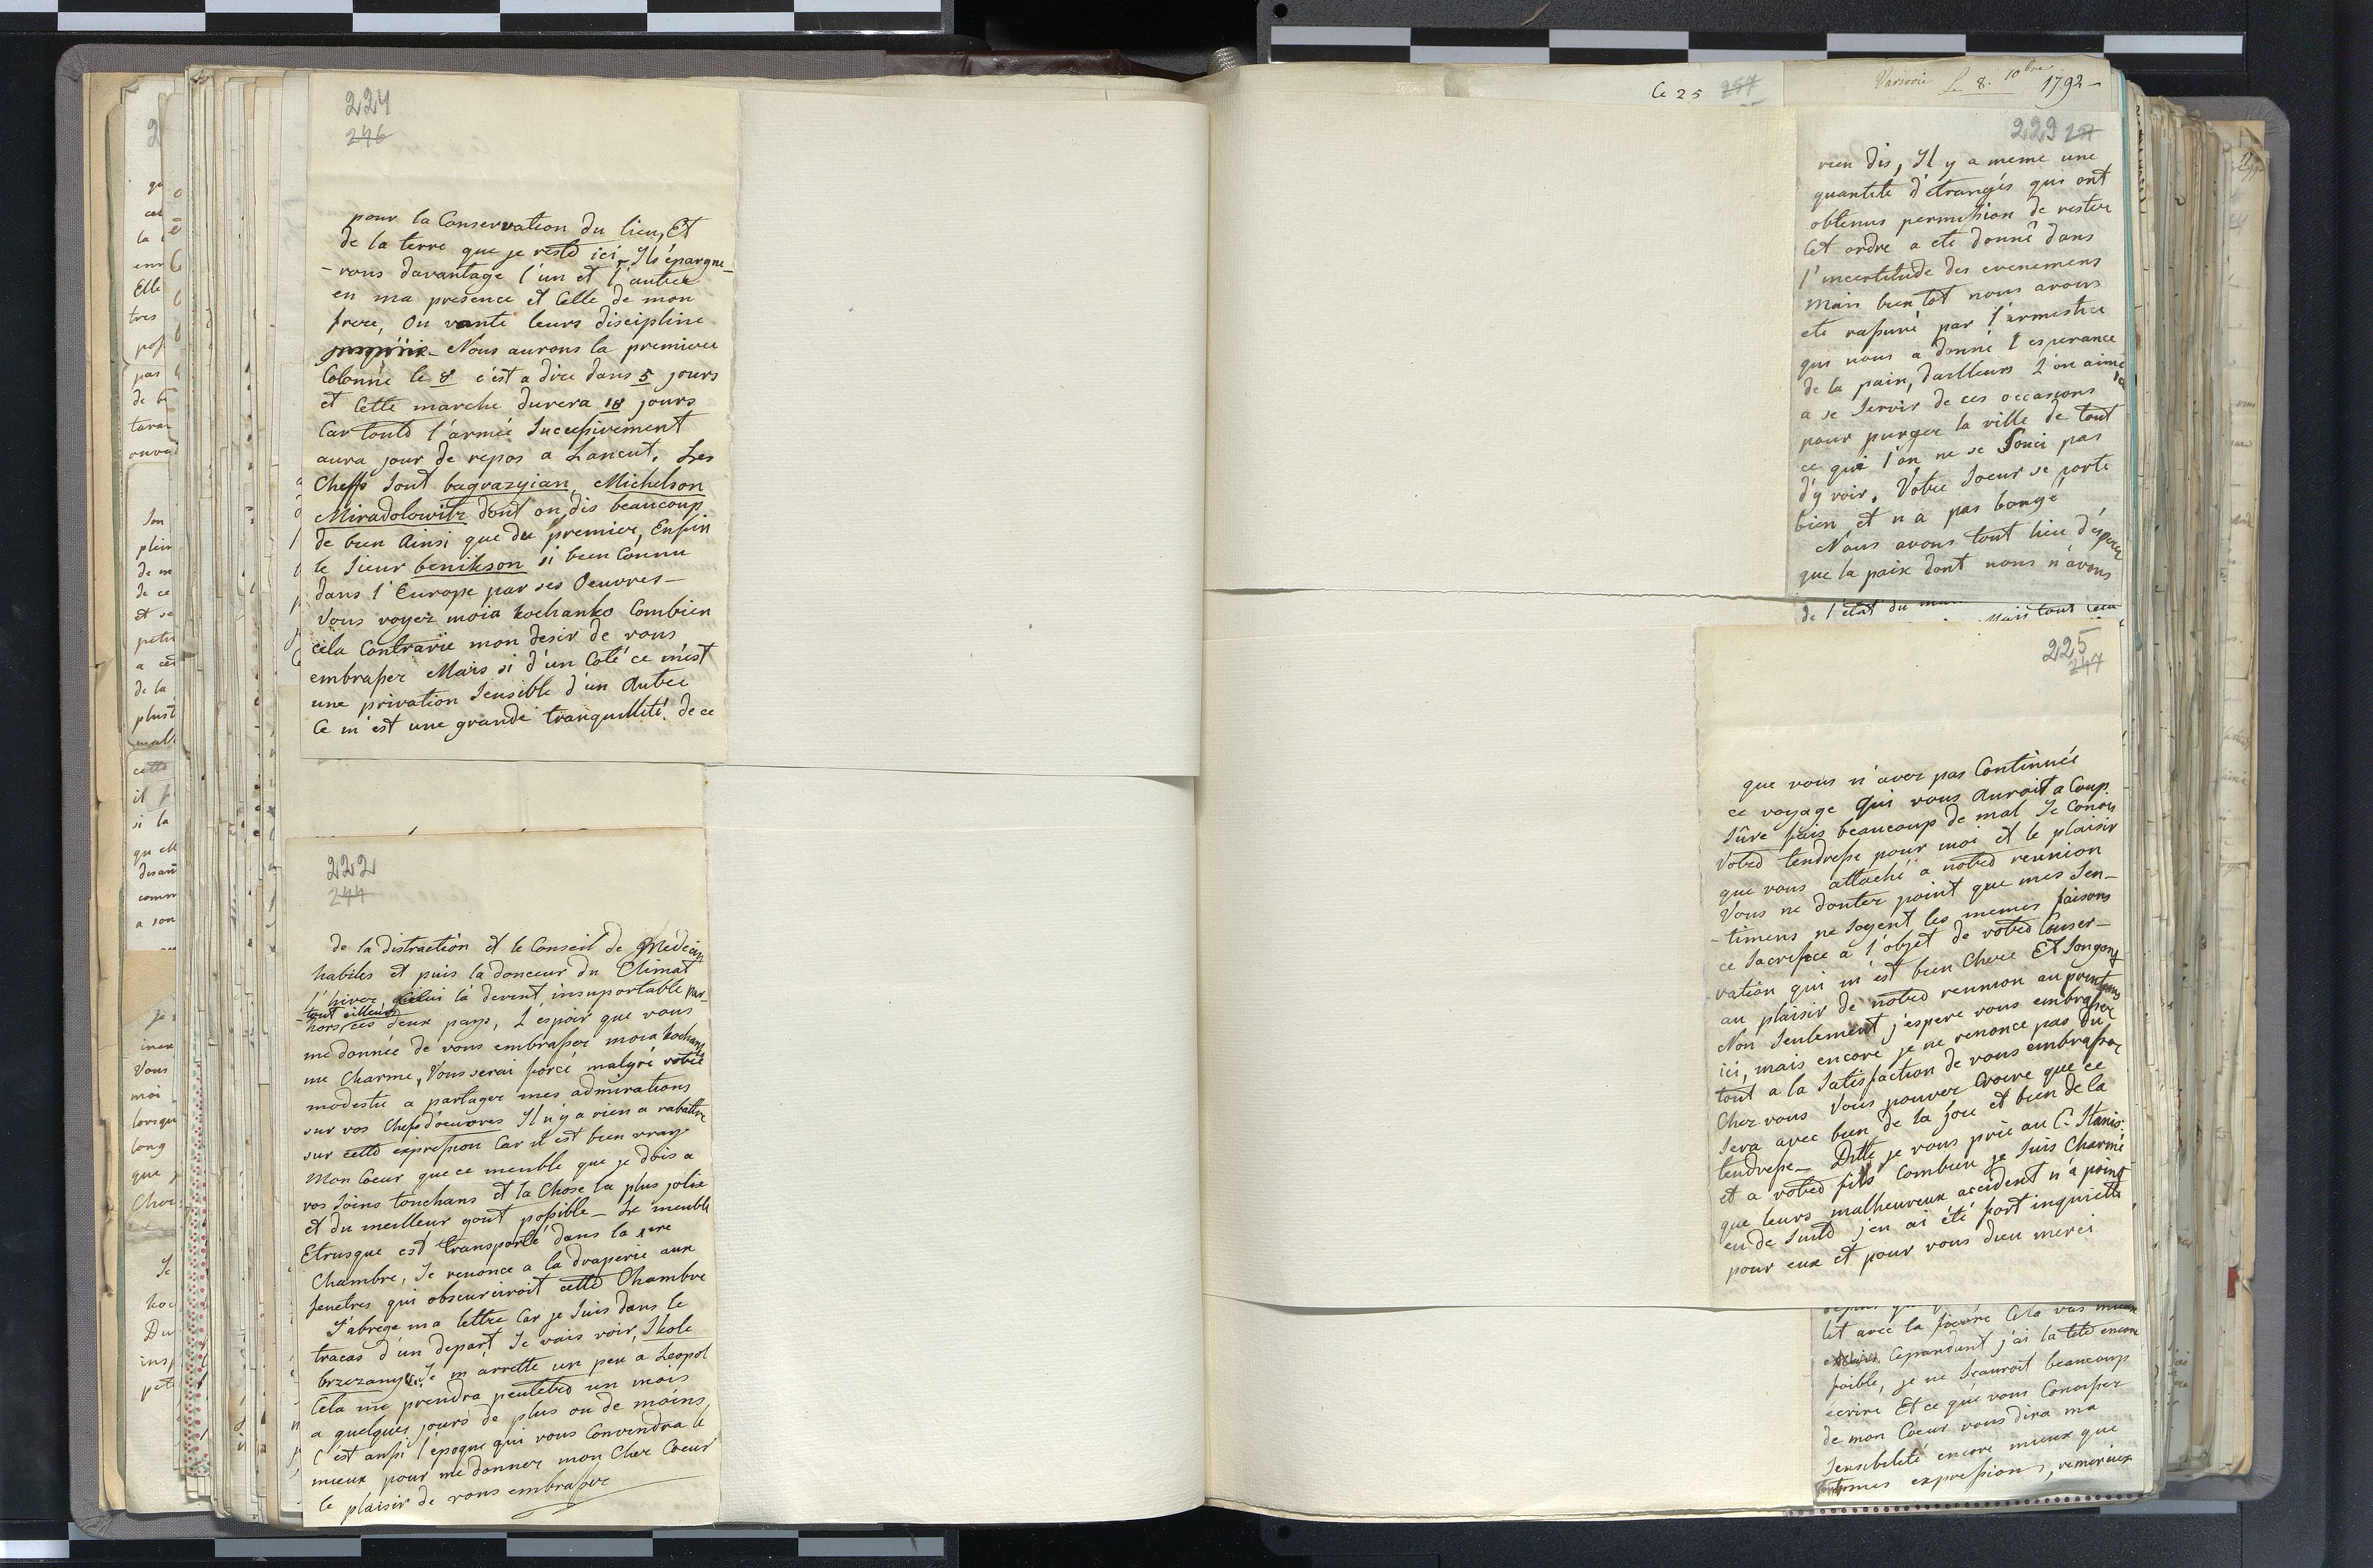 224
246
pour la Conservation du lieu, Et
de la terre que je reste ici, Ils épargne-
-rons davantage l'un et l'autre
en ma presence et Celle de mon
frere, On vante leurs discipline
Nous aurons la premiere
Colonne le 8 c'est a dire dans 5 jours
et Cette marche durera 18 jours
Car toute l'armée Succesivement
aura jour de repos a Lancut. Les
Cheffs sont bagrazyian, Michelson
Miradolowitz dont on dis beaucoup
de bien Ainsi que du premier, Enfin
le Sieur benikson si bien Connu
dans l'Europe par ses Oeuvres—
Vous voyez moia kochanko Combien
cela Contrarie mon desir de vous
embrasser Mais si d'un Coté ce m'est
une privation Sensible d'un Autre
Ce m'est une grande tranquillité de ce
222
244
de la distraction et le Conseil de Medecin
habiles et puis la douceur du Climat
l'hiver, Celui là devent insuportable par-
-tout eilleurs
hors ces deux pays, L'espoir que vous
me donnée de vous embrasser moia kochanko
me Charme, Vous serai forcé malgré votre
modestie a partager mes admirations
sur vos Chefs d'oeuvres Il n'y a rien a rabattre
sur cette expression Car il est bien vray
Mon Coeur que ce meuble que je dois a
vos Soins touchans et la Chose la plus jolie
et du meilleur gout possible— Le meuble
Etrusque est transporté dans la 1ere
Chambre, Je renonce a la draperie aux
fenetres qui obscurciroit cette Chambre
J'abrege ma lettre Car je Suis dans le
tracas d'un depart Je vais voir, Skole
brzezany, Je m'arrette un peu a Leopol
Cela me prendra peutetre un mois
a quelques jours de plus ou de moins,
C'est aussi l'epoque qui vous Conviendra le
mieux pour me donner mon Cher Coeur
le plaisir de vous embrasser
Ce 25
Varsovie Le 8. 10bre 1792—
229
rien dis, Il y a meme une
quantité d'étrangés qui ont
obtenus permission de rester
Cet ordre a ete donné dans
l'incertitude des evenemens
Mais bien tot nous avons
ete rassuré par l'armestice
qui nous a donné l'esperance
de la paix, dailleurs l'on aime
a se Servir de ces occasions
pour purger la ville de tout
ce que l'on ne se Souci pas
d'y voir. Votre Soeur se porte
bien et n'a pas bougé
Nous avons tout lieu d'ésperer
que la paix dont nous n'avons
de l'état du
Mais tout
225
247
que vous n'avez pas Continués
ce voyage Qui vous Auroit a Coup
Sûre fais beaucoup de mal Je Conois
Votre tendresse pour moi et le plaisir
que vous attaché a notre reunion
Vous ne douter point que mes Sen-
-timens ne soyent les memes faisons
ce Sacrifice a l'objet de votre Conser-
vation qui m'est bien Chere Et Songons
au plaisir de notre reunion au printems
Non Seulement j'espere vous embrasser
ici, mais encore je ne renonce pas du
tout a la Satisfaction de vous embrasser
Chez vous Vous pouvez Croire que ce
Sera avec bien de la Joie et bien de la
tendresse— Ditte je vous prie au C. Stanis.
et a votre fils Combien je Suis Charmé
que leurs malheureux accident n'a point
eu de Suite j'en ai été fort inquiette
pour eux et pour vous dieu merci
let avec la fievre Cela vas mieux
Cepandant j'ai la tete encore
foible, je ne Scauroit beaucoup
écrire Et ce que vous Conaissez
de mon Coeur vous dira ma
Sensibelité encore mieux que
mes expressions, remerciez